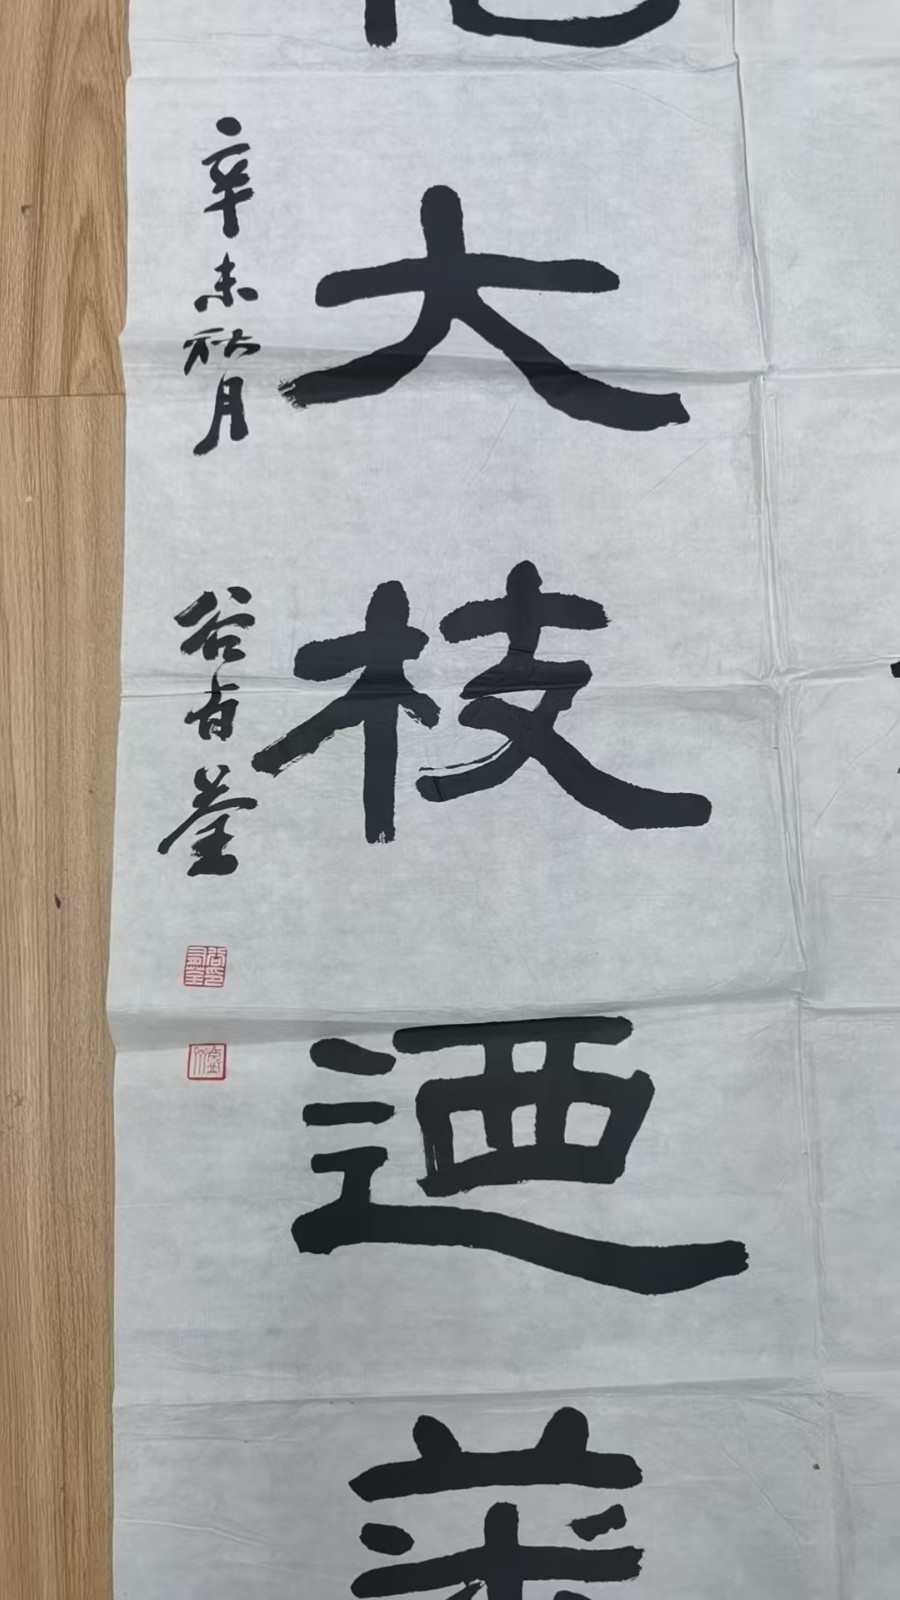 大枝迺
辛未秋月 谷有荃